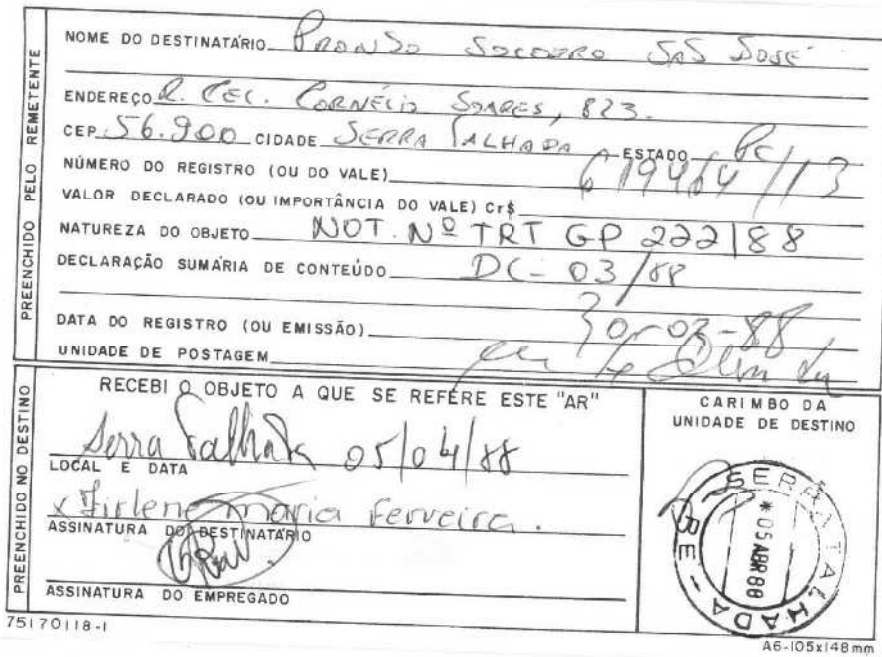 PREENCHIDO PELO REMETENTE
NOME DO DESTINATÁRIO PRONSO SOCORRO SAS JOSÉ
ENDEREÇO R. CEL. CORNÉLIO SOARES, 823.
CEP 56.900 CIDADE SERRA TALHADA ESTADO PE
NÚMERO DO REGISTRO (OU DO VALE) 619464/13
VALOR DECLARADO (OU IMPORTÂNCIA DO VALE) Cr$
NATUREZA DO OBJETO NOT. Nº TRT GP 222/88
DECLARAÇÃO SUMÁRIA DE CONTEÚDO DC-03/88
DATA DO REGISTRO (OU EMISSÃO) 30-03-88
UNIDADE DE POSTAGEM
PREENCHIDO NO DESTINO
RECEBI O OBJETO A QUE SE REFERE ESTE "AR"
Serra Talhada 05/04/88
LOCAL E DATA
x Firlene maria Ferreira.
ASSINATURA DO DESTINATÁRIO
ASSINATURA DO EMPREGADO
CARIMBO DA
UNIDADE DE DESTINO
SERRA TALHADA - PE
*05 ABR 88
75170118-1
A6-105x148mm